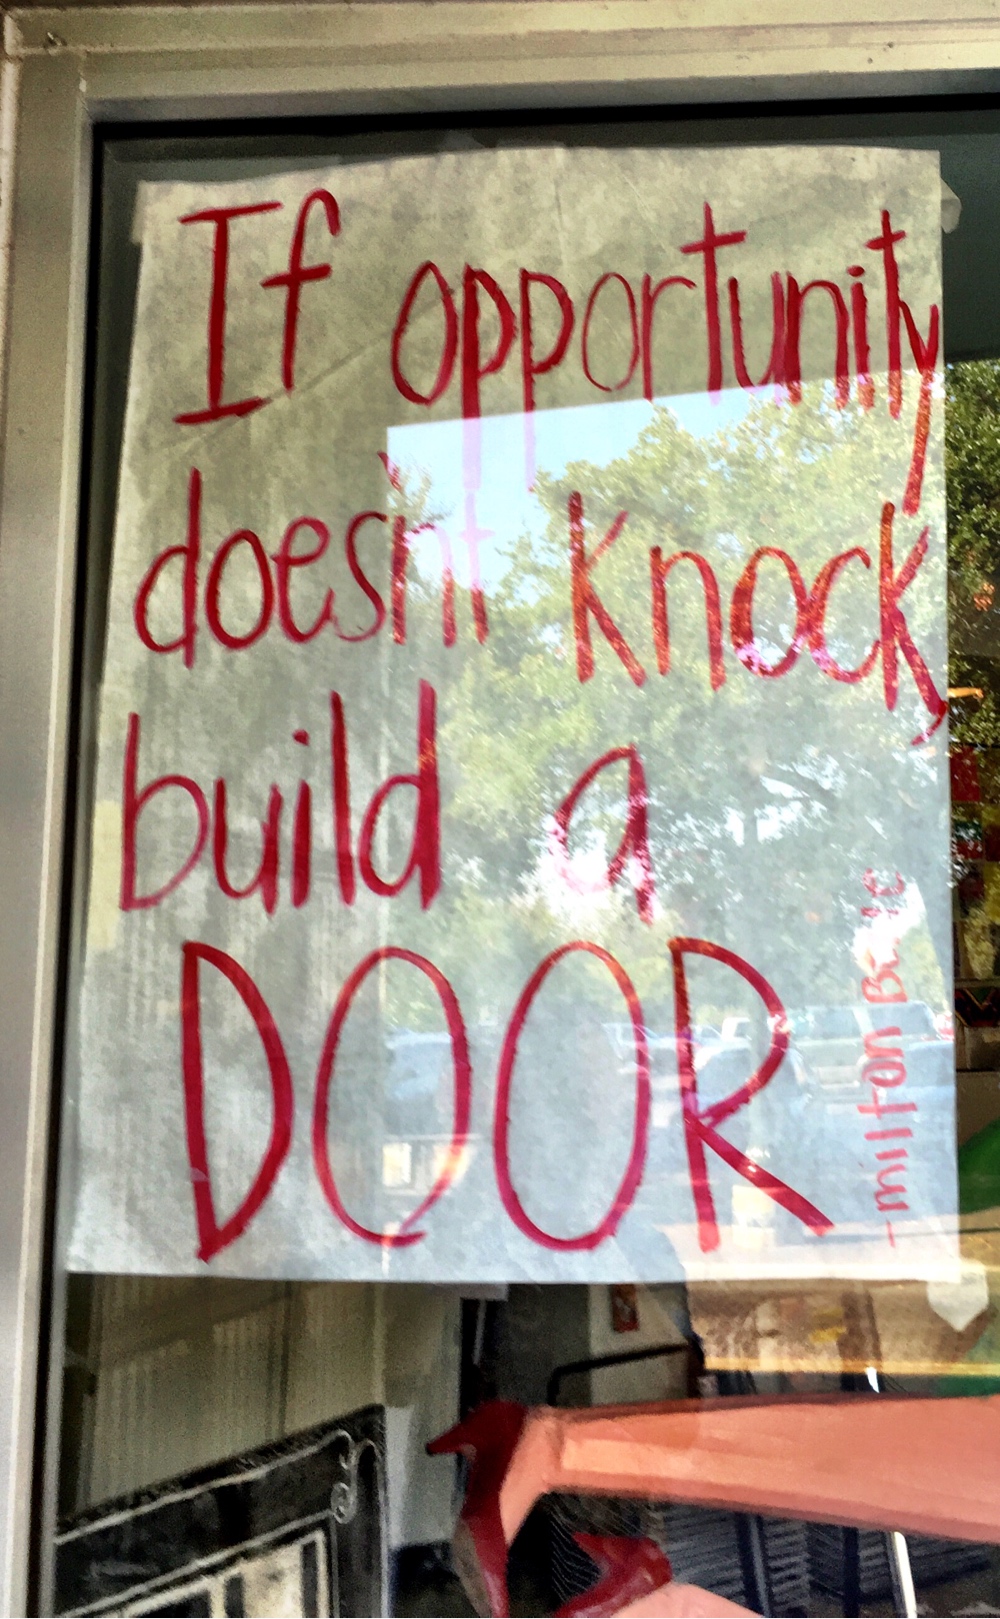 If opportunity
doesn't knock,
build a
DOOR
-milton Berle